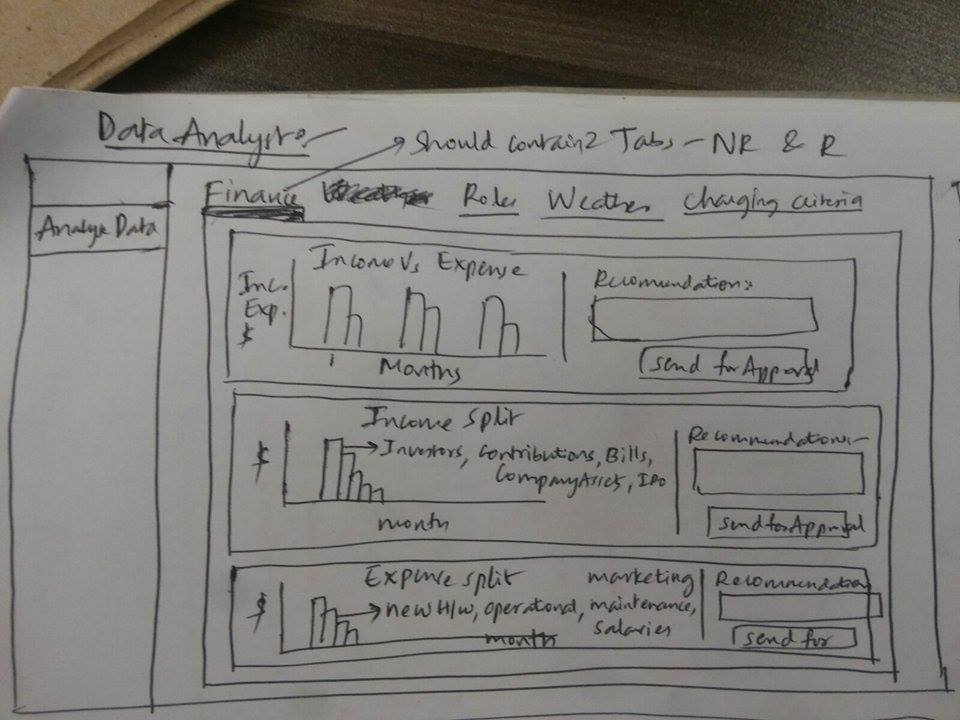 Data Analyst:-
Should contain 2 Tabs - NR & R
Finance Roles Weather Changing criteria
Analyse Data
Income Vs Expense
Inc.
Exp.
$
Months
Recommendation:
Send for Approval
Income Split
$
Investors, Contributions, Bills,
Company Asset, IPO
month
Recommendations:-
Send for Approval
Expense split
$
marketing
new H/w, operational, maintenance,
Salaries
month
Recommendation
Send for